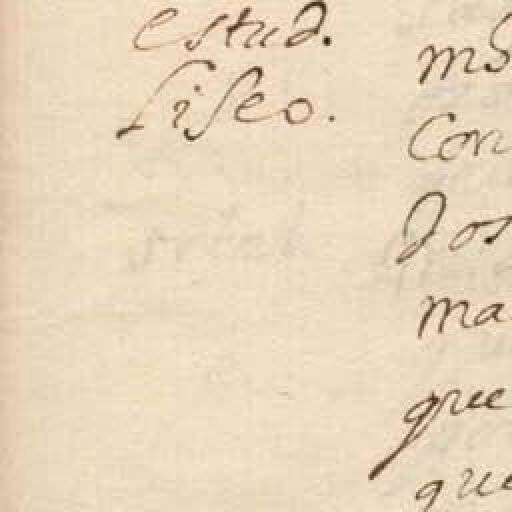 estud.
liseo.
Con
dos
ma
que
que